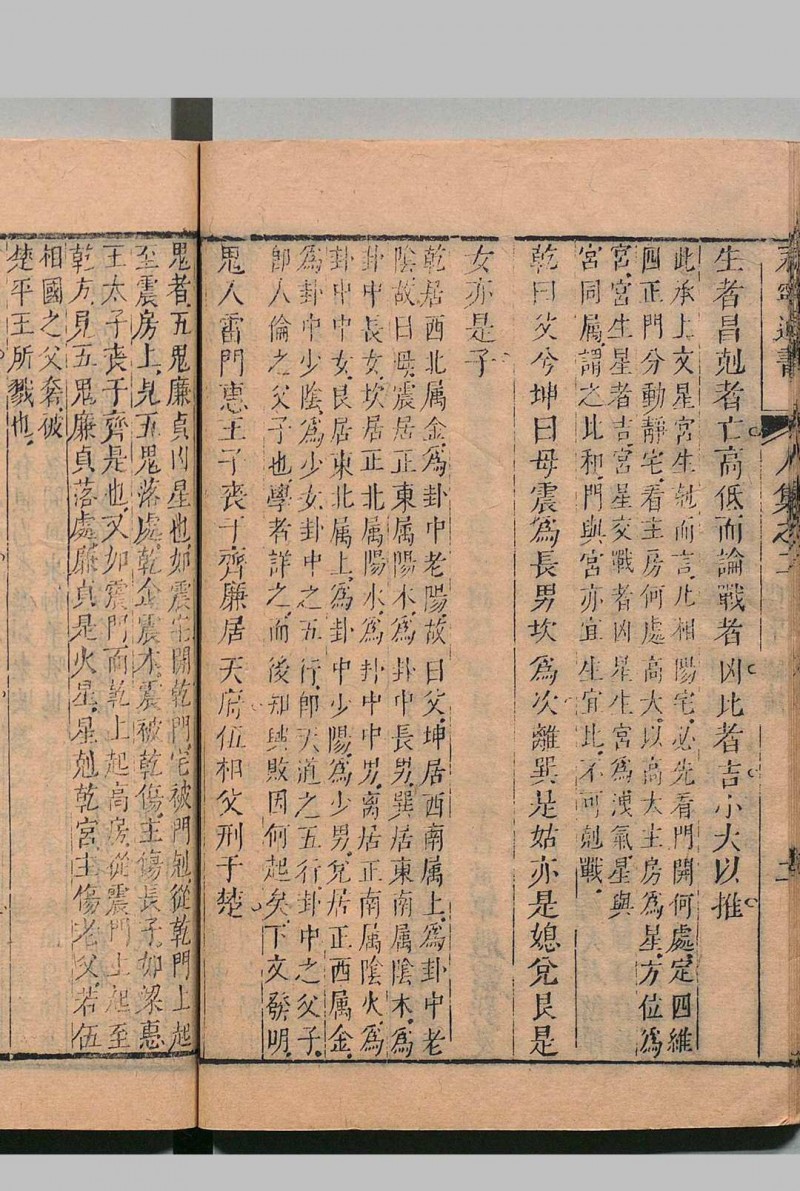 生者昌剋者亡高低而論戰者凶比者吉小大以推
此承上文星宮生剋而言凡相陽宅必先看門開何處定四維
四正門分動靜宅看主房何處高大以高大主房為星方位為
宮宮生星者吉宮星交戰者凶星生宮為洩氣星與
宮同屬謂之比和門與宮亦宜生宜比不可剋戰
乾曰父兮坤曰母震爲長男坎爲次離巽是姑亦是媳兌艮是
女亦是子
乾居西北属金為卦中老陽故曰父坤居西南属土為卦中老
陰故曰母震居正東属陽木為卦中長男巽居東南属陰木為
卦中長女坎居正北属陽水為卦中中男离居正南属陰火為
卦中中女艮居東北属土為卦中少陽為少男兌居正西属金
為卦中少陰為少女卦中之五行即天道之五行卦中之父子
即人倫之父子也學者詳之而後知興敗因何起矣下文發明
鬼入雷門惠王子喪于齊廉居天府伍相父刑于楚
鬼者五鬼廉貞凶星也如震宅開乾門宅被門剋從乾門上起
至震房上見五鬼落處乾金震木震被乾傷主傷長子如梁惠
王太子喪于齊是也又如震門而乾上起高房從震門上起至
乾方見五鬼廉貞落處廉貞是火星星剋乾宮主傷老父若伍
相國之父奢被
楚平王所戮也